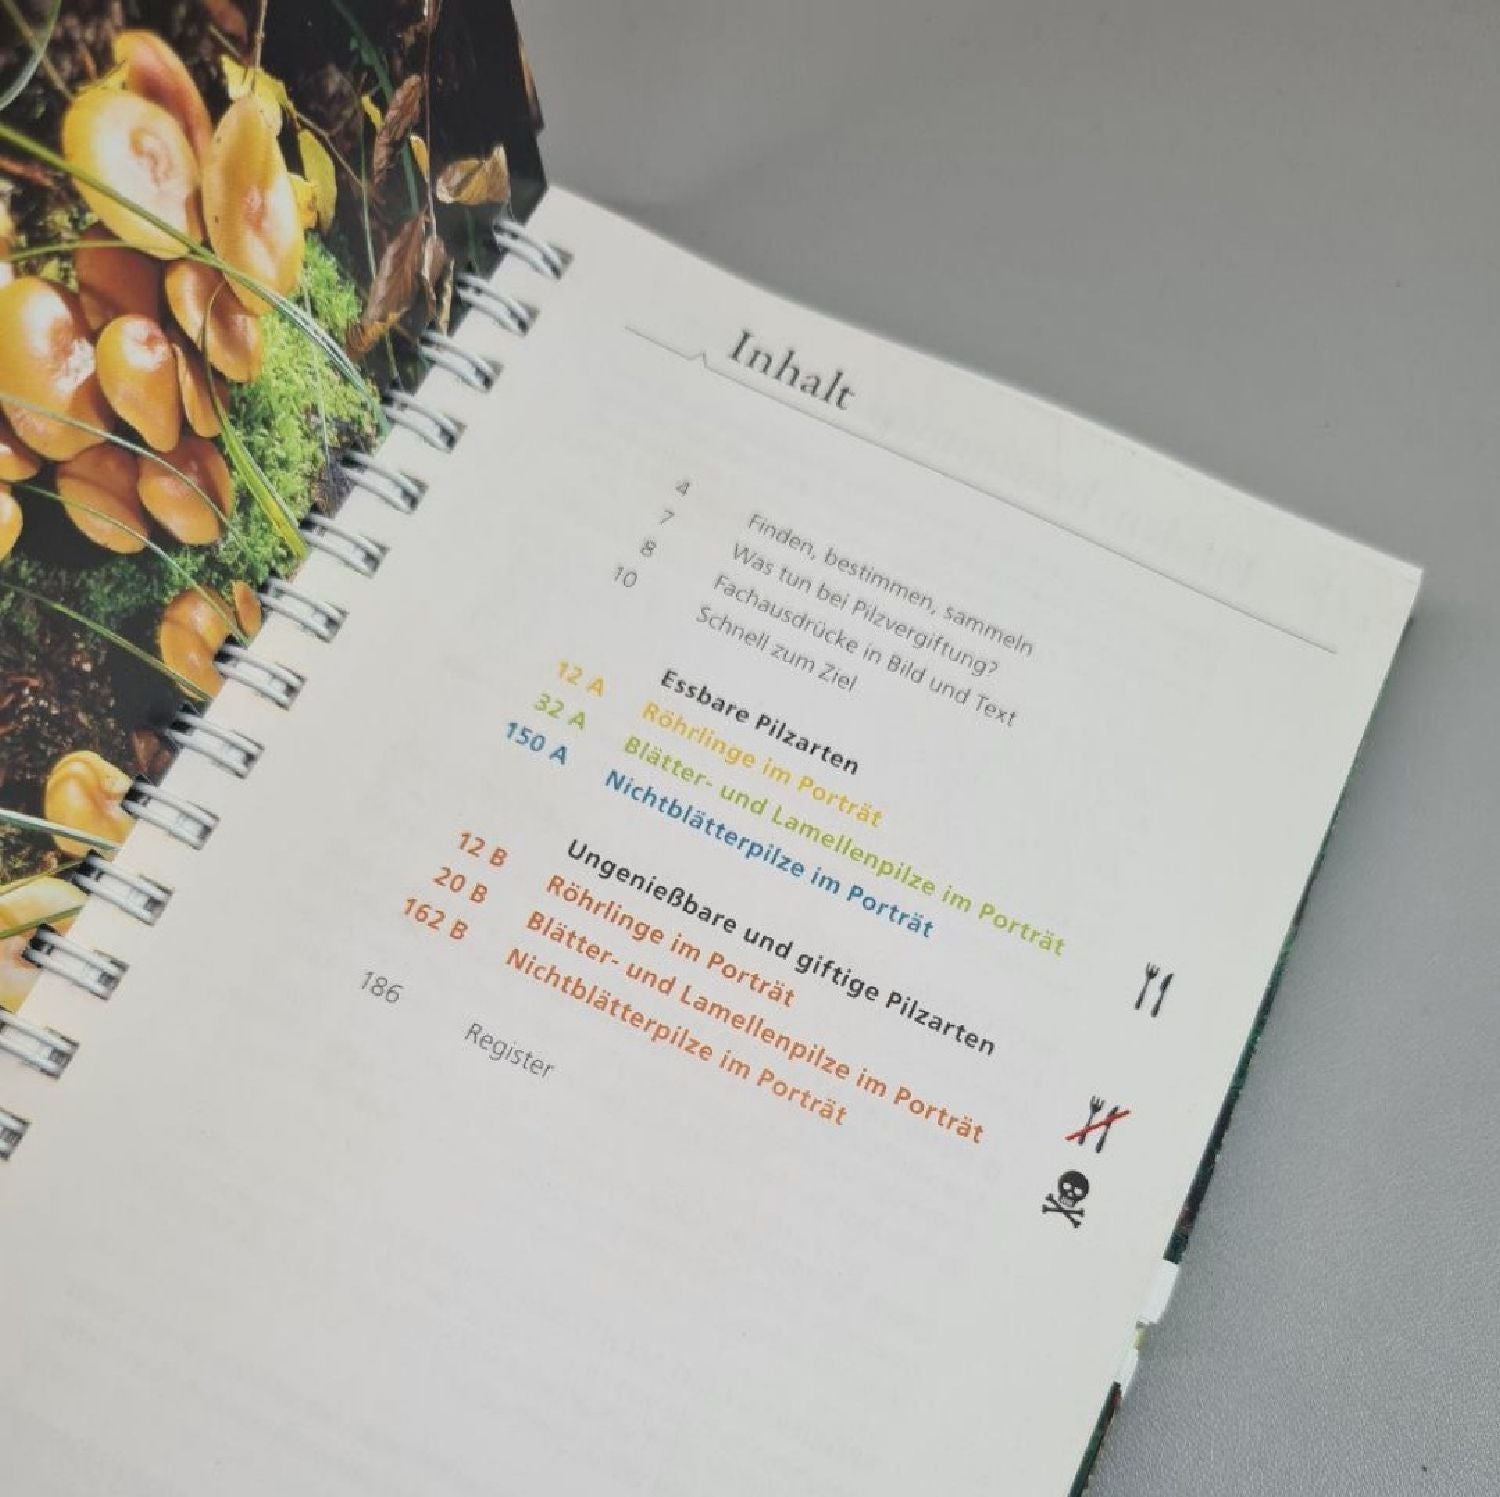 Inhalt
4 Finden, bestimmen, sammeln
7 Was tun bei Pilzvergiftung?
8 Fachausdrücke in Bild und Text
10 Schnell zum Ziel
Essbare Pilzarten
12 A Röhrlinge im Porträt
32 A Blätter- und Lamellenpilze im Porträt
150 A Nichtblätterpilze im Porträt
Ungenießbare und giftige Pilzarten
12 B Röhrlinge im Porträt
20 B Blätter- und Lamellenpilze im Porträt
162 B Nichtblätterpilze im Porträt
186 Register